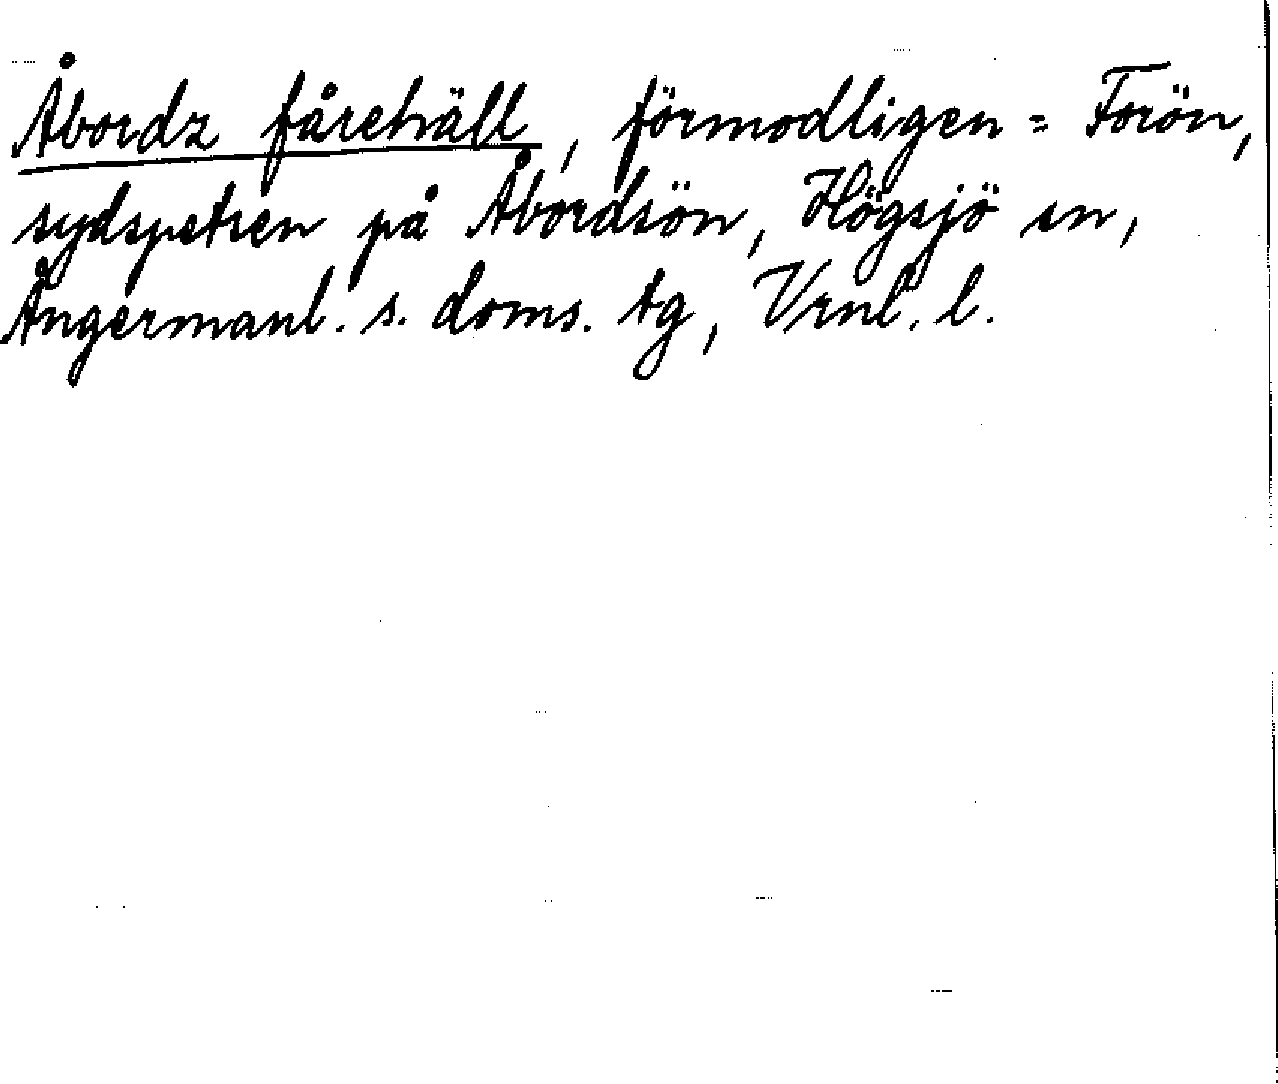 Åbordz fårehäll, förmodligen = Forön,
sydspetsen på Åbordsön, Högsjö sn,
Ångermanl. s. doms. tg, Vrnl. l.